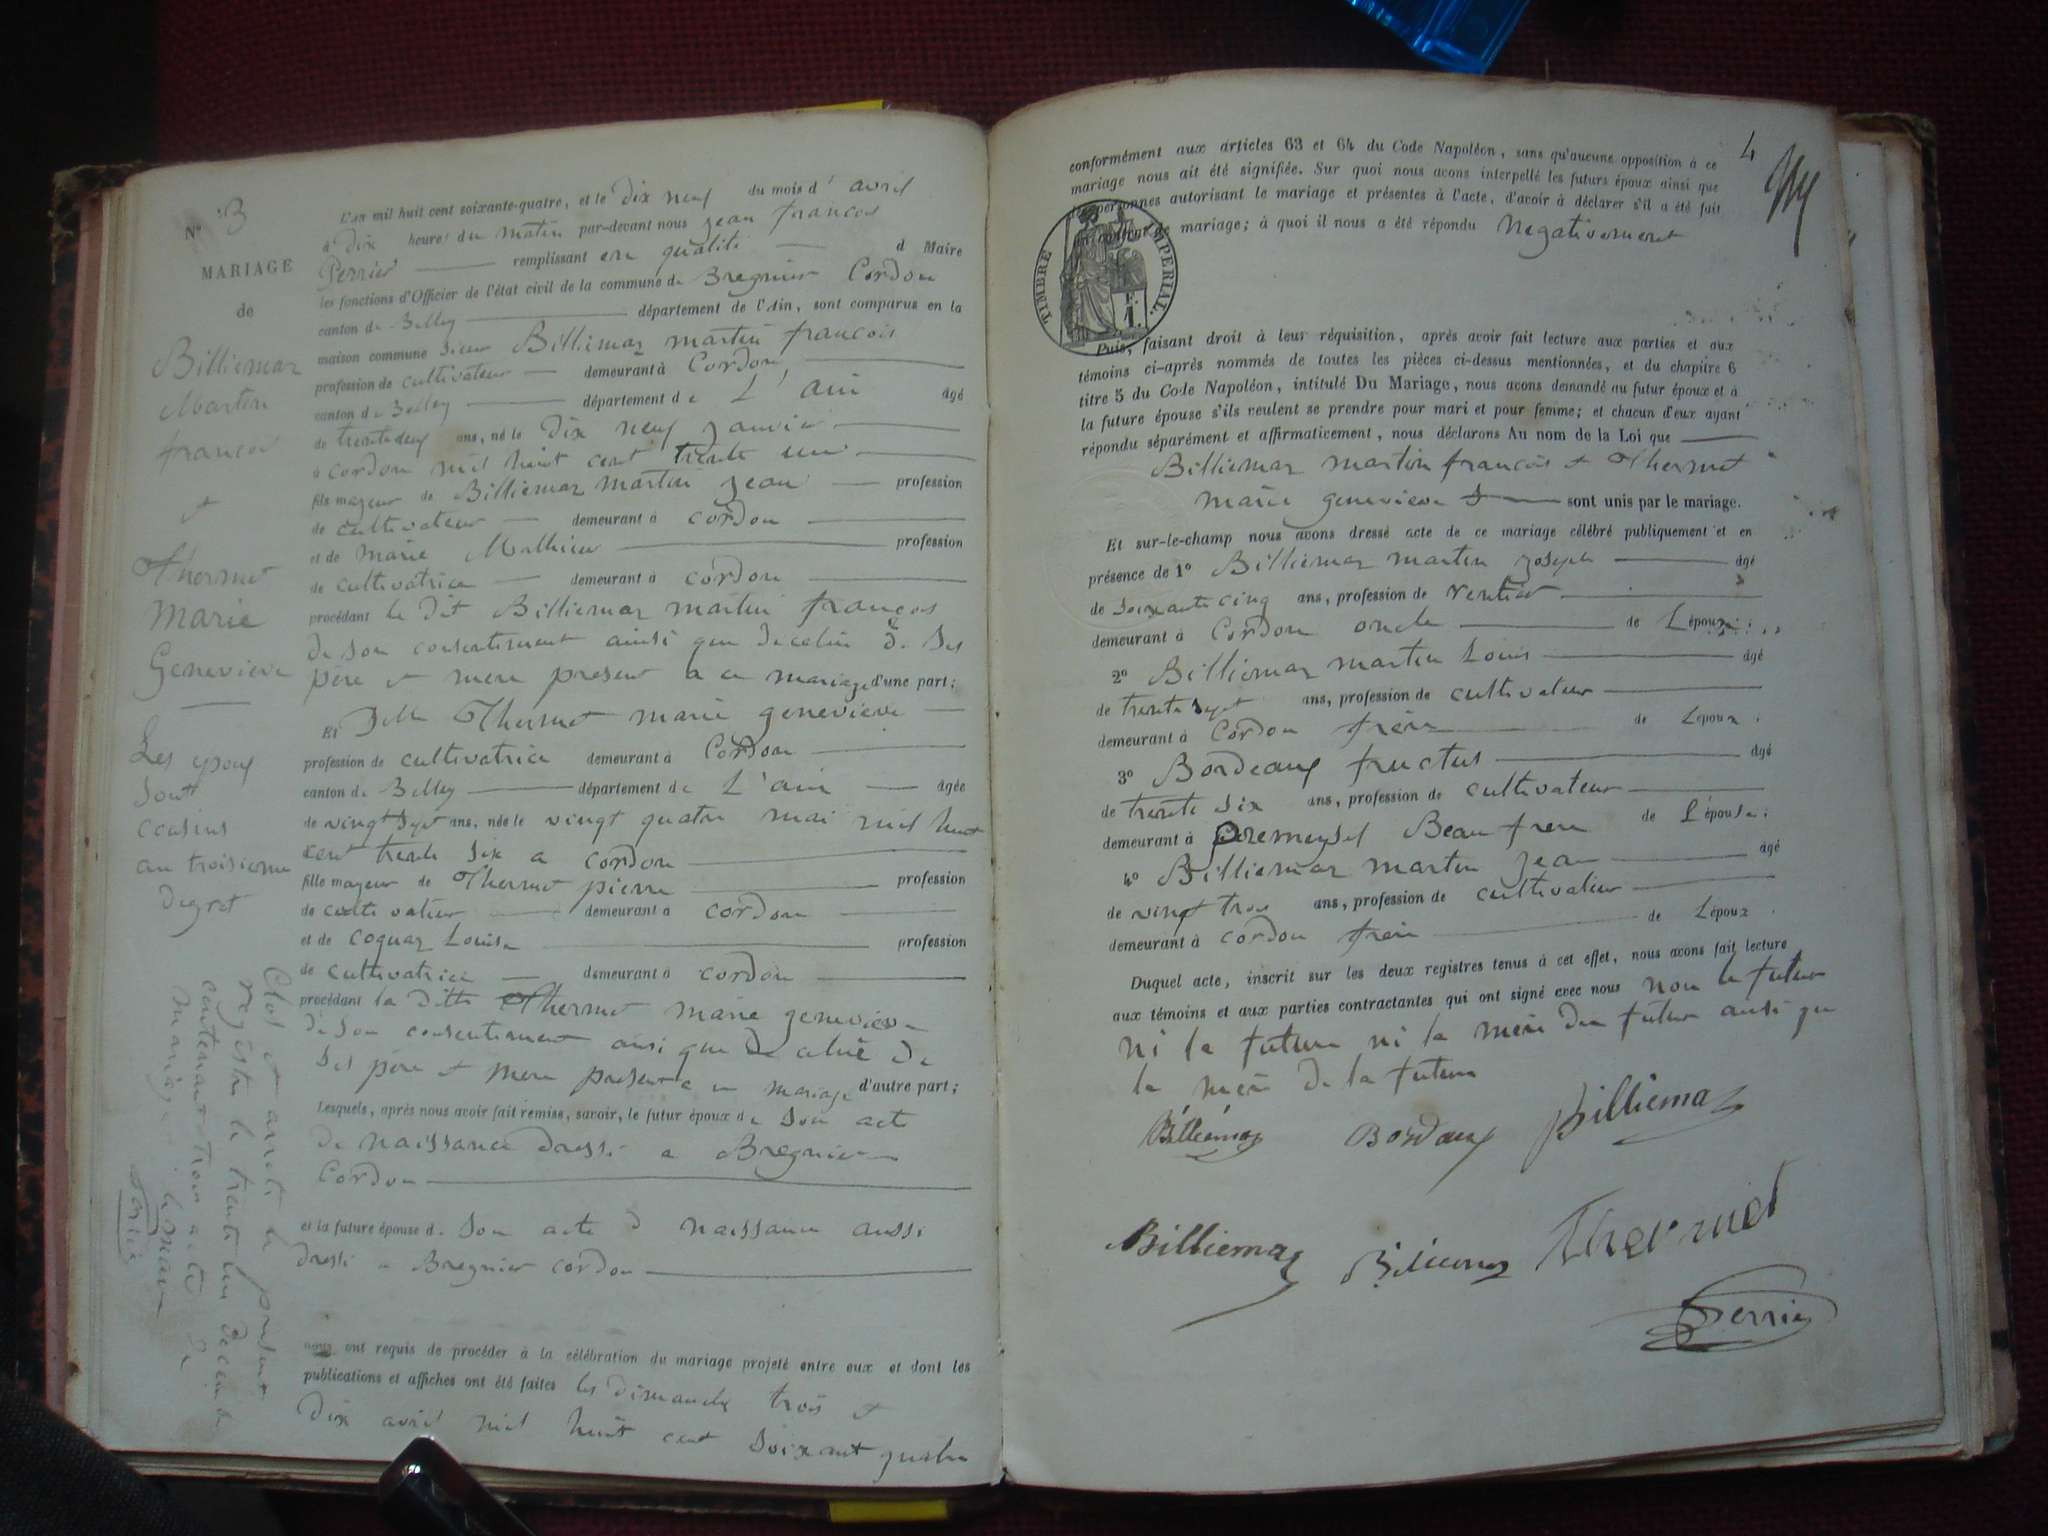 N° 3
MARIAGE
de
Billiemaz
Martin
francois
et
Thermet
Marie
Genevieve
Les epoux
sont
cousins
au troisieme
degret
Clos et arreté le present
registre le trente un decembre
contenant trois acte de
mariage le maire
Perrier
L'an mil huit cent soixante-quatre, et le dix neuf du mois d' avril
à dix heure du matin par-devant nous jean francois
Perrier remplissant en qualité d Maire
les fonctions d'Officier de l'état civil de la commune de Bregnier Cordon
canton de Belley département de l'Ain, sont comparus en la
maison commune sieur Billiemaz martin francois
profession de cultivateur demeurant à Cordon
canton de Belley département de L'ain âgé
de trente deux ans, né le dix neuf janvier
à cordon mil huit cent trente un
fils majeur de Billiemaz martin jean profession
de cultivateur demeurant à cordon
et de marie Mathieu profession
de cultivatrice demeurant à cordon
procédant le dit Billiemaz martin françois
de son consentiment ainsi que de celui de ses
père et mere present a ce mariage d'une part;
Et Delle Thermet marie genevieve
profession de cultivatrice demeurant à Cordon
canton de Belley département de L'ain âgée
de vingt sept ans, née le vingt quatre mai mil huit
cent trente six a cordon
fille majeur de Thermet pierre profession
de cultivateur demeurant à cordon
et de coquaz Louise profession
de cultivatrice demeurant à cordon
procédant la ditte Thermet marie genevieve
de son consentiment ainsi que de celui de
ses père et mere present a ce mariage d'autre part;
Lesquels, après nous avoir fait remise, savoir, le futur époux de son acte
de naissance dressé a Bregnier
Cordon
et la future épouse d. son acte d naissance aussi
dressé a Bregnier cordon
nous ont requis de procéder à la célébration du mariage projeté entre eux et dont les
publications et affiches ont été faites les dimanche trois et
dix avril mil huit cent soixant quatre
4
conformément aux articles 63 et 64 du Code Napoléon, sans qu'aucune opposition à ce
mariage nous ait été signifiée. Sur quoi nous avons interpellé les futurs époux ainsi que
les personnes autorisant le mariage et présentes à l'acte, d'avoir à déclarer s'il a été fait
un contrat de mariage; à quoi il nous a été répondu negativement
TIMBRE IMPERIAL.
F.
1.
Puis, faisant droit à leur réquisition, après avoir fait lecture aux parties et aux
témoins ci-après nommés de toutes les pièces ci-dessus mentionnées, et du chapitre 6
titre 5 du Code Napoléon, intitulé Du Mariage, nous avons demandé au futur époux et à
la future épouse s'ils veulent se prendre pour mari et pour femme; et chacun d'eux ayant
répondu séparément et affirmativement, nous déclarons Au nom de la Loi que
Billiemaz martin françois et Thermet
marie genevieve sont unis par le mariage.
Et sur-le-champ nous avons dressé acte de ce mariage célébré publiquement et en
présence de 1° Billiemaz martin joseph âgé
de soixante cinq ans, profession de rentier
demeurant à Cordon oncle de Lépoux
2° Billiemaz martin Louis âgé
de trente sept ans, profession de cultivateur
demeurant à Cordon frère de Lépoux.
3° Bordeaux fructus âgé
de trente six ans, profession de cultivateur
demeurant à premeysel Beau frere de L'épouse.
4° Billiemaz martin jean âgé
de vingt trois ans, profession de cultivateur
demeurant à cordon frère de Lépoux.
Duquel acte, inscrit sur les deux registres tenus à cet effet, nous avons fait lecture
aux témoins et aux parties contractantes qui ont signé avec nous non le futur
ni la future ni la mère du futur ausi que
la mère de la future
Billiemaz Bordaux Billiemaz
Billiemaz Biliemaz Thermet
Perrier